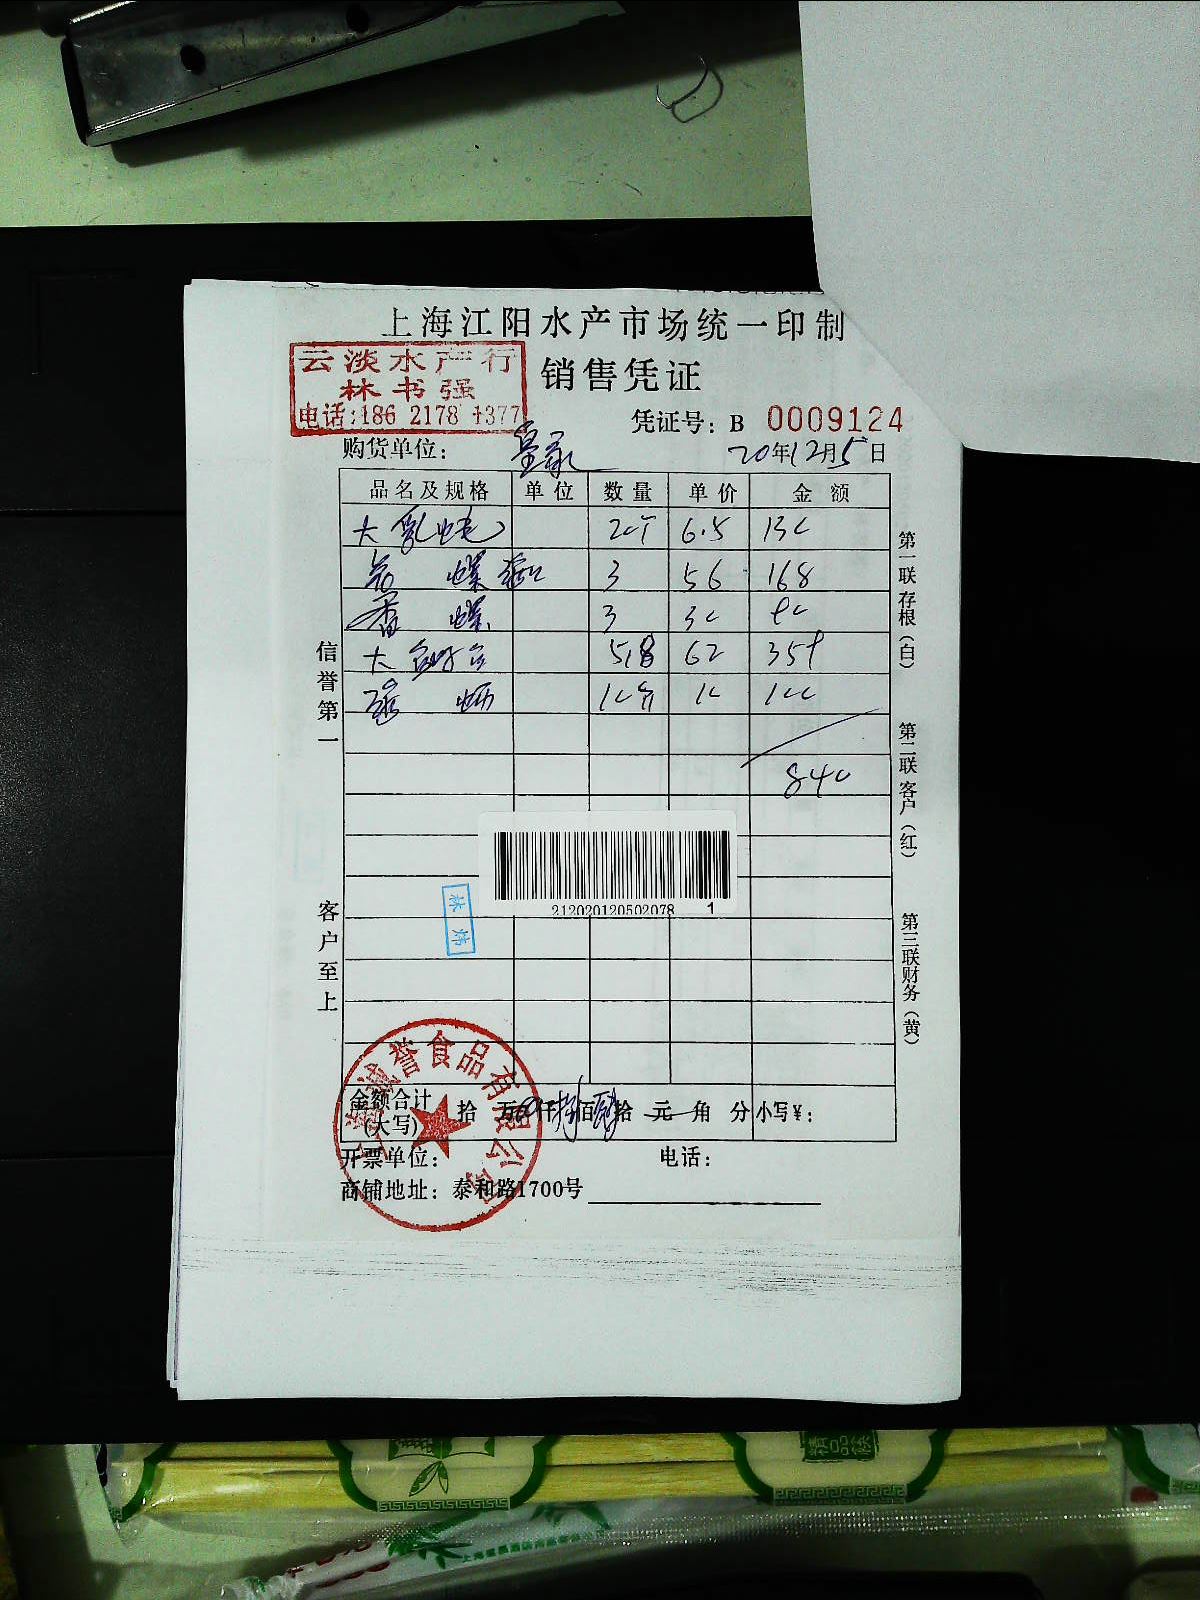 上海江阳水产市场统一印制
云淡水产行
林书强
电话:186 2178 1377
销售凭证
凭证号: B 0009124
购货单位:
20年12月5日
品名及规格 单位 数量 单价 金额
大 20个 6.5 130
螺 3 56 168
香螺 3 30 90
大 5.8 62 359
10个 10 100
840
信誉第一
客户至上
第一联存根(白)
第二联客户(红)
第三联财务(黄)
212020120502078 1
林炜
诚誉食品有限公司
金额合计(大写) 拾 万 仟 佰 拾 元 角 分 小写¥:
开票单位: 电话:
商铺地址: 泰和路1700号
精品筷